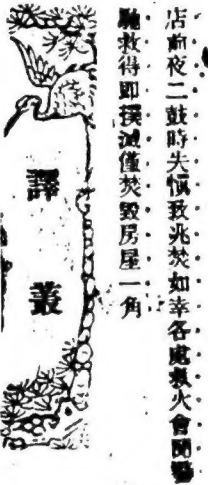 店前夜二鼓時失愼致兆焚如幸各處救火會聞警
馳救得卽撲滅僅焚毀房屋一角
譯叢